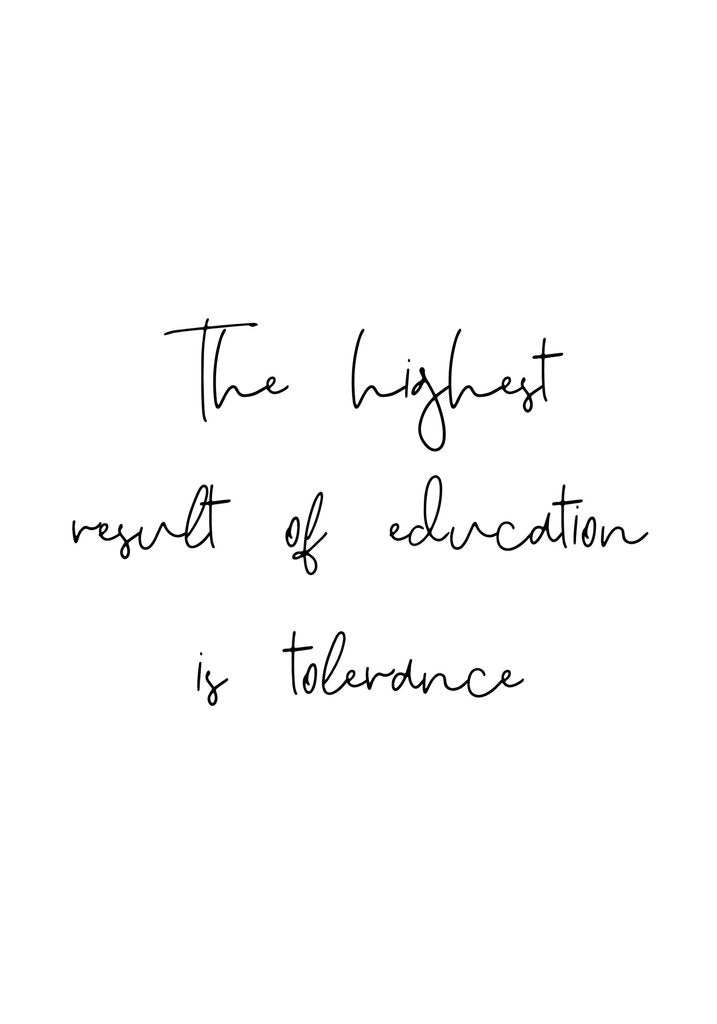 The highest
result of education
is tolerance